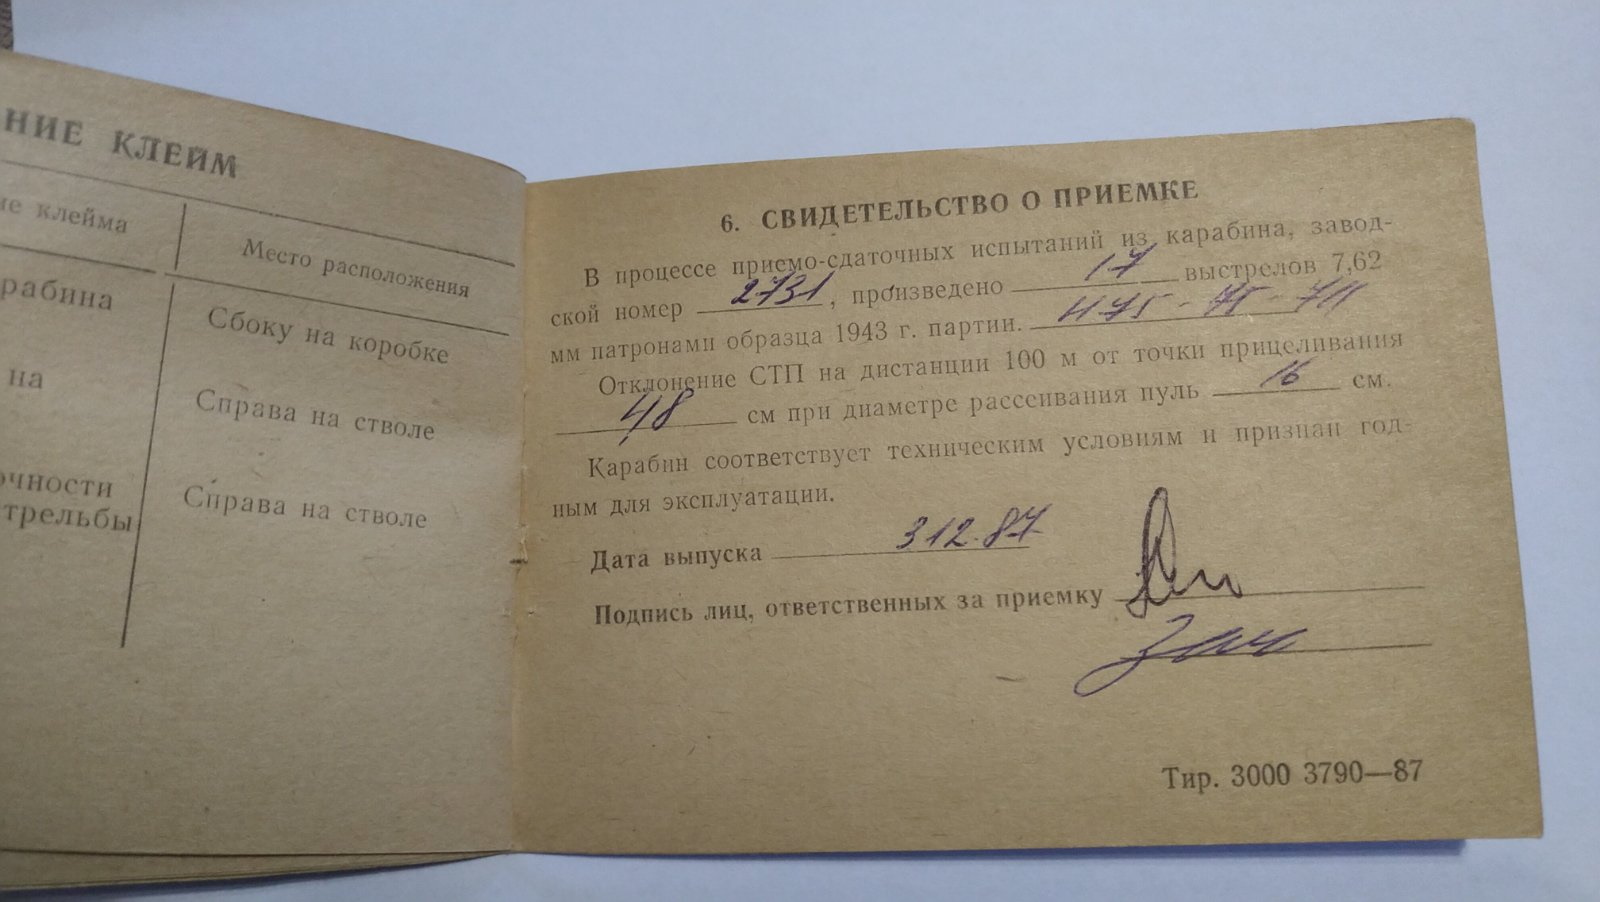 НИЕ КЛЕЙМ
ие клейма
Место расположения
рабина
Сбоку на коробке
на
Справа на стволе
очности
трельбы
Справа на стволе
6. СВИДЕТЕЛЬСТВО О ПРИЕМКЕ
В процессе приемо-сдаточных испытаний из карабина, завод-
ской номер 2731, произведено 17 выстрелов 7,62
мм патронами образца 1943 г. партии.
Отклонение СТП на дистанции 100 м от точки прицеливания
48 см при диаметре рассеивания пуль 16 см.
Карабин соответствует техническим условиям и признан год-
ным для эксплуатации.
Дата выпуска 3.12.87
Подпись лиц, ответственных за приемку
Тир. 3000 3790—87